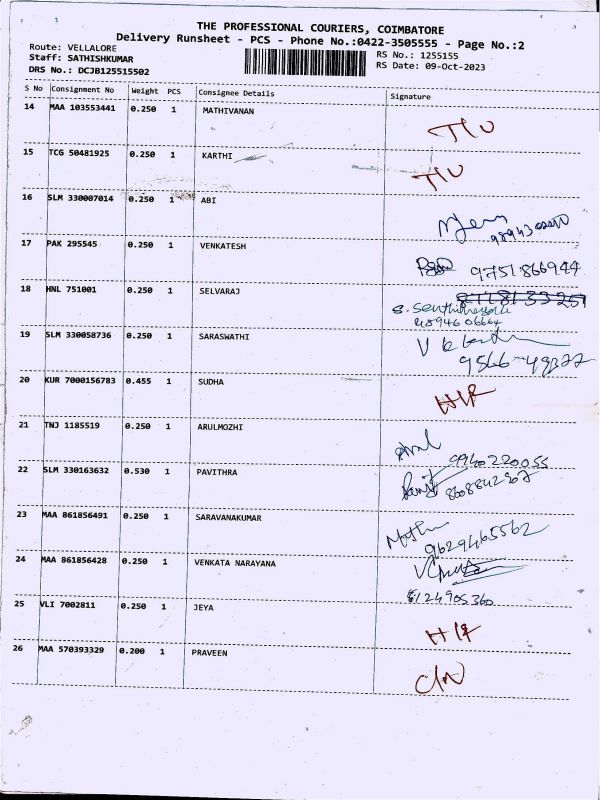 THE PROFESSIONAL COURIERS, COIMBATORE
Delivery Runsheet - PCS - Phone No.:0422-3505555 - Page No.:2
Route: VELLALORE
RS No.: 1255155
Staff: SATHISHKUMAR
RS Date: 09-Oct-2023
DRS No.: DCJB125515502
S No Consignment No Weight PCS Consignee Details Signature
14 MAA 103553441 0.250 1 MATHIVANAN
15 TCG 50481925 0.250 1 KARTHI
16 SLM 330007014 0.250 1 ABI
17 PAK 295545 0.250 1 VENKATESH
9751866944
18 HNL 751001 0.250 1 SELVARAJ
19 SLM 330058736 0.250 1 SARASWATHI
20 KUR 7000156783 0.455 1 SUDHA
21 TNJ 1185519 0.250 1 ARULMOZHI
9940220055
22 SLM 330163632 0.530 1 PAVITHRA
23 MAA 861856491 0.250 1 SARAVANAKUMAR
9629465562
24 MAA 861856428 0.250 1 VENKATA NARAYANA
8124905360
25 VLI 7002811 0.250 1 JEYA
26 MAA 570393329 0.200 1 PRAVEEN